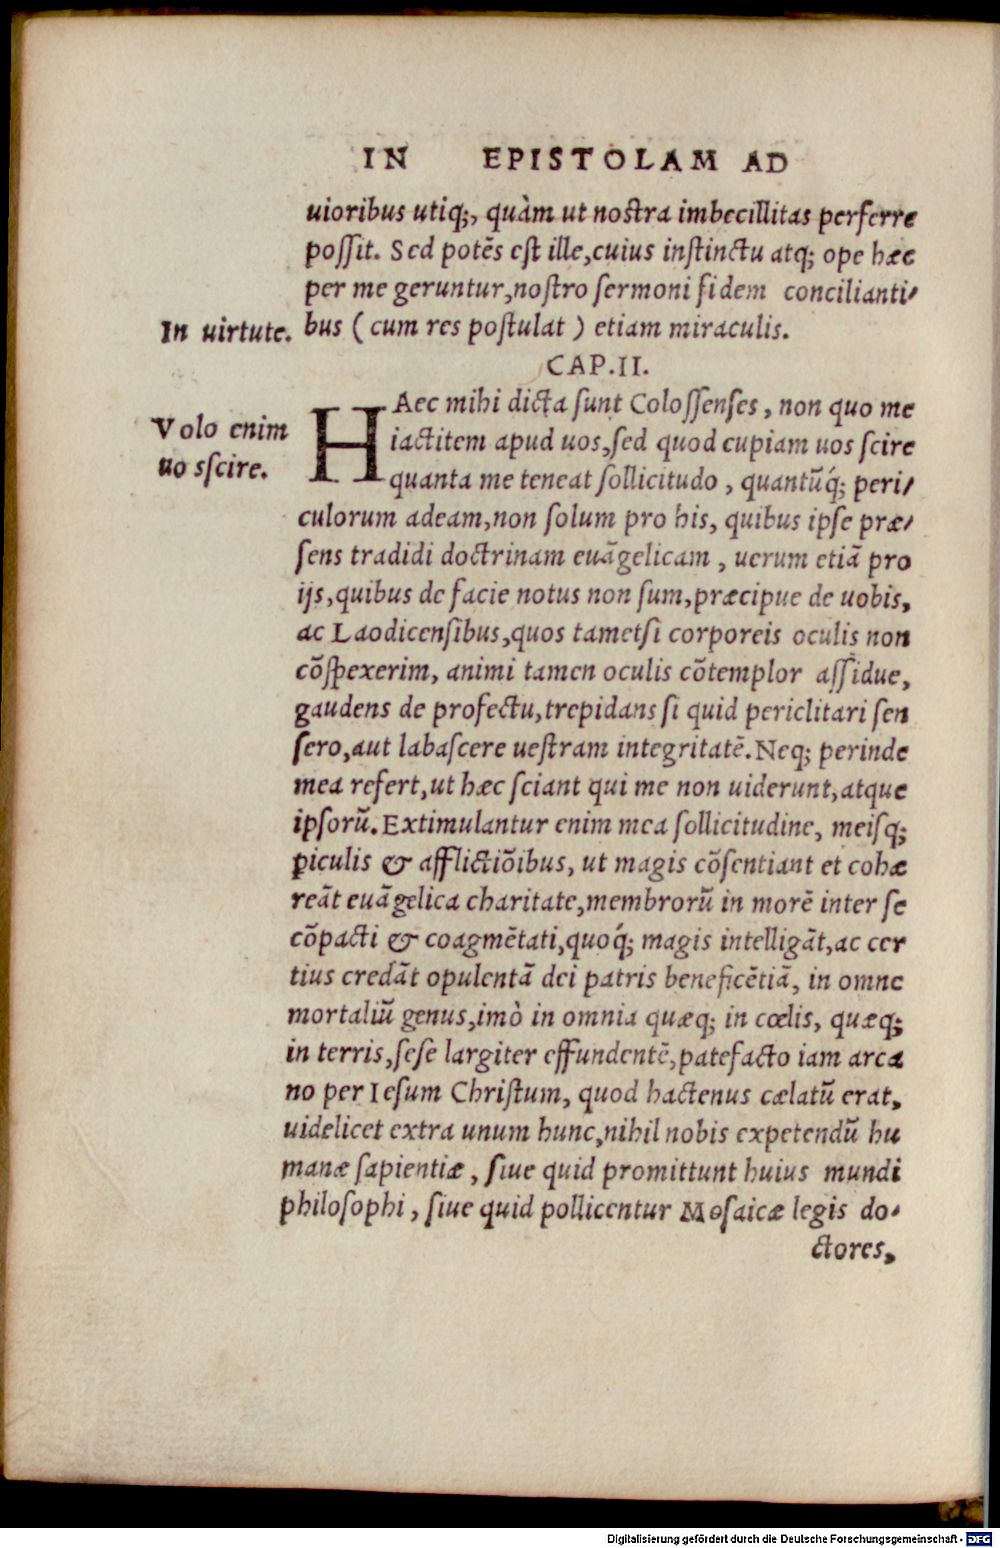 IN EPISTOLAM AD
uioribus utiq;, quàm ut nostra imbecillitas perferre
possit. Sed potẽs est ille,cuius instinctu atq; ope hæc
per me geruntur,nostro sermoni fidem concilianti-
In uirtute. bus (cum res postulat) etiam miraculis.
CAP.II.
Volo enim
uo sscire.
HAec mihi dicta sunt Colossenses, non quo me
iactitem apud uos,sed quod cupiam uos scire
quanta me teneat sollicitudo, quantũq́; peri-
culorum adeam,non solum pro his, quibus ipse præ-
sens tradidi doctrinam euãgelicam, uerum etiã pro
ijs,quibus de facie notus non sum,præcipue de uobis,
ac Laodicensibus,quos tametsi corporeis oculis non
cõspexerim, animi tamen oculis cõtemplor assidue,
gaudens de profectu,trepidans si quid periclitari sen
sero,aut labascere uestram integritatẽ.Neq; perinde
mea refert,ut hæc sciant qui me non uiderunt,atque
ipsorũ.Extimulantur enim mea sollicitudine, meisq;
ꝑiculis & afflictiõibus, ut magis cõsentiant et cohæ
reãt euãgelica charitate,membrorũ in morẽ inter se
cõpacti & coagmẽtati,quoq́; magis intelligãt,ac cer
tius credãt opulentã dei patris beneficẽtiã, in omne
mortaliũ genus,imò in omnia quæq; in cœlis, quæq;
in terris,sese largiter effundentẽ,patefacto iam arca
no per Iesum Christum, quod hactenus cælatũ erat,
uidelicet extra unum hunc,nihil nobis expetendũ hu
manæ sapientiæ, siue quid promittunt huius mundi
philosophi, siue quid pollicentur Mosaicæ legis do-
ctores,
Digitalisierung gefördert durch die Deutsche Forschungsgemeinschaft - DFG